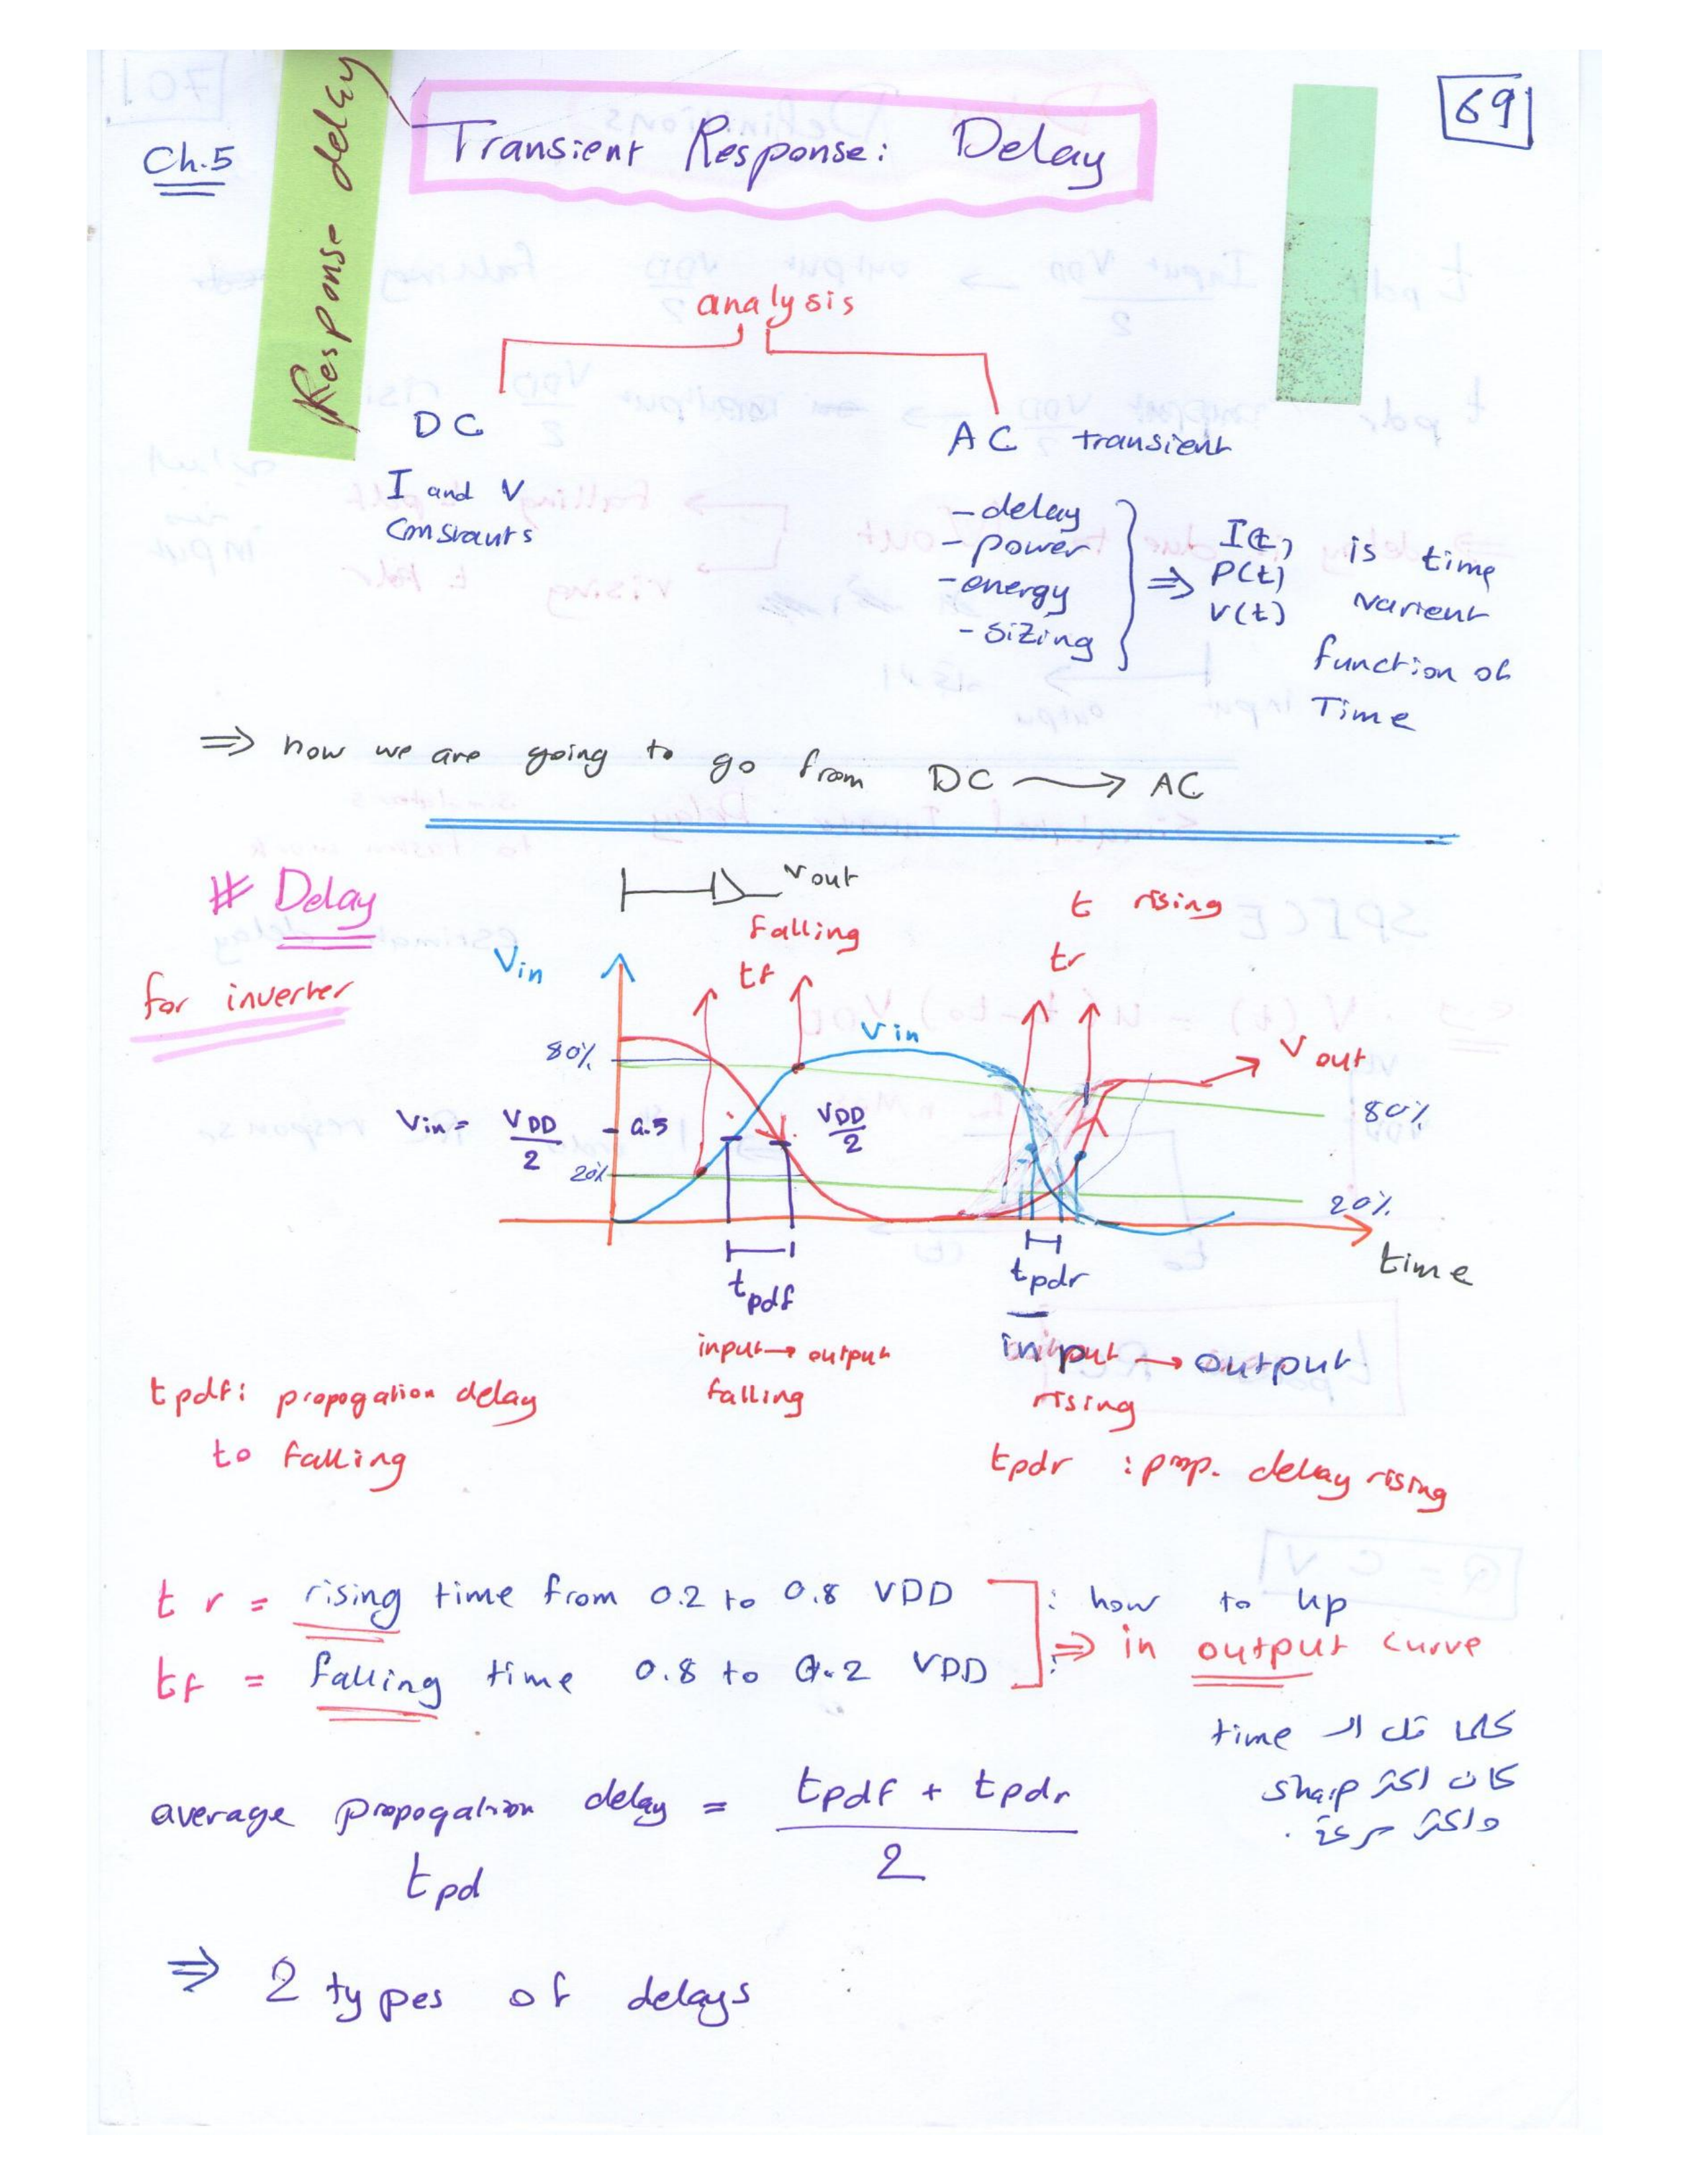 69
Ch.5
Response delay
Transient Response: Delay
analysis
DC
I and V
Constants
AC transient
- delay
- power
- energy
- sizing
⇒ I(t), P(t) V(t)
is time
varient
function of
Time
⇒ how we are going to go from DC → AC
# Delay
for inverter
Vout
Falling
tf
t rising
tr
Vin
80%
Vin
Vout
80%
Vin = VDD/2 - 0.5
VDD/2
20%
20%
time
tpdf
tpdr
input → output
falling
input → output
rising
tpdf: propogation delay
to falling
tpdr : prop. delay rising
tr = rising time from 0.2 to 0.8 VDD : how to up
tf = falling time 0.8 to 0.2 VDD : ⇒ in output curve
كلما قل الـ time
كان اكثر sharp
واكثر سرعة.
average propogation delay = tpdf + tpdr / 2
tpd
⇒ 2 types of delays